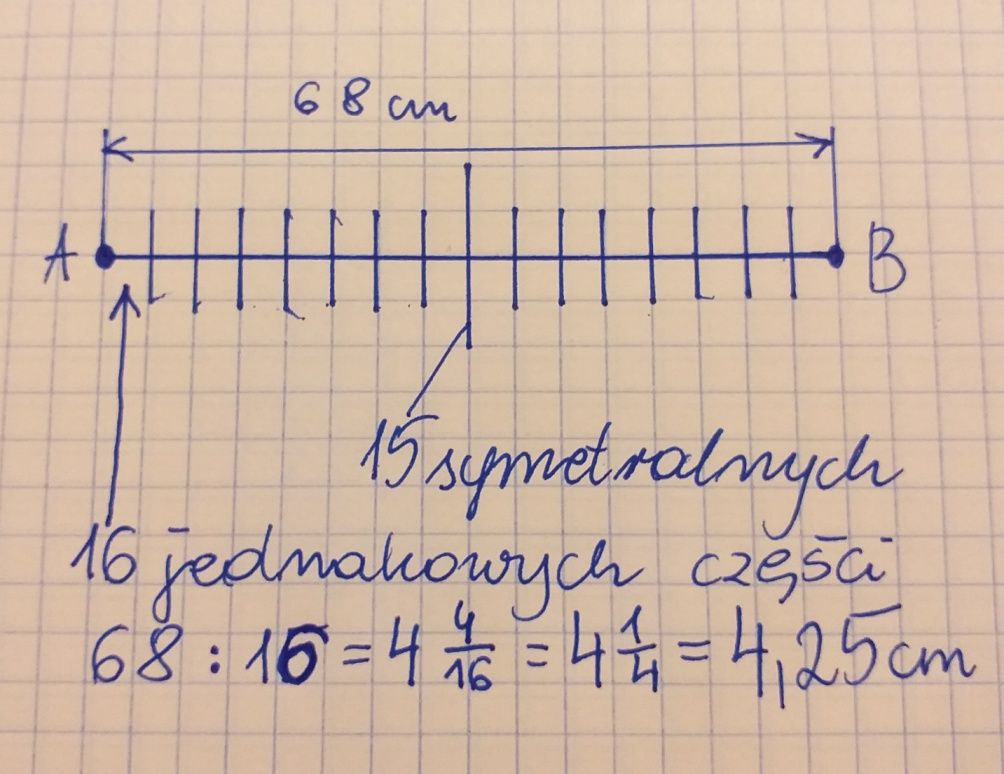 68 cm
A B
15 symetralnych
16 jednakowych części
68 : 16 = 4 4/16 = 4 1/4 = 4,25 cm